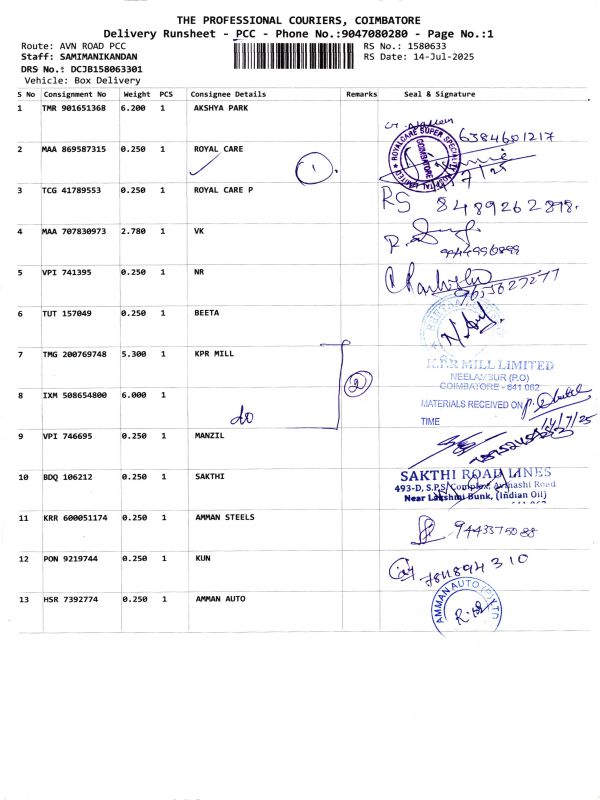 THE PROFESSIONAL COURIERS, COIMBATORE
Delivery Runsheet - PCC - Phone No.:9047080280 - Page No.:1
Route: AVN ROAD PCC
RS No.: 1580633
Staff: SAMIMANIKANDAN
RS Date: 14-Jul-2025
DRS No.: DCJB158063301
Vehicle: Box Delivery
S No Consignment No Weight PCS Consignee Details Remarks Seal & Signature
1 TMR 901651368 6.200 1 AKSHYA PARK
6384601217
2 MAA 869587315 0.250 1 ROYAL CARE
1.
ROYALCARE SUPER SPECIALITY HOSPITAL LIMITED
COIMBATORE
3 TCG 41789553 0.250 1 ROYAL CARE P
RS 8489262898.
4 MAA 707830973 2.780 1 VK
5 VPI 741395 0.250 1 NR
6 TUT 157049 0.250 1 BEETA
7 TMG 200769748 5.300 1 KPR MILL
2
K.P.R MILL LIMITED
NEELAMBUR (P.O)
COIMBATORE - 641 062
8 IXM 508654800 6.000 1
do
MATERIALS RECEIVED ON
TIME
14/7/25
9 VPI 746695 0.250 1 MANZIL
10 BDQ 106212 0.250 1 SAKTHI
SAKTHI ROAD LINES
493-D, S.P.S. Complex, Avinashi Road
Near Lakshmi Bunk, (Indian Oil)
11 KRR 600051174 0.250 1 AMMAN STEELS
12 PON 9219744 0.250 1 KUN
13 HSR 7392774 0.250 1 AMMAN AUTO
AMMAN AUTO (P) LTD